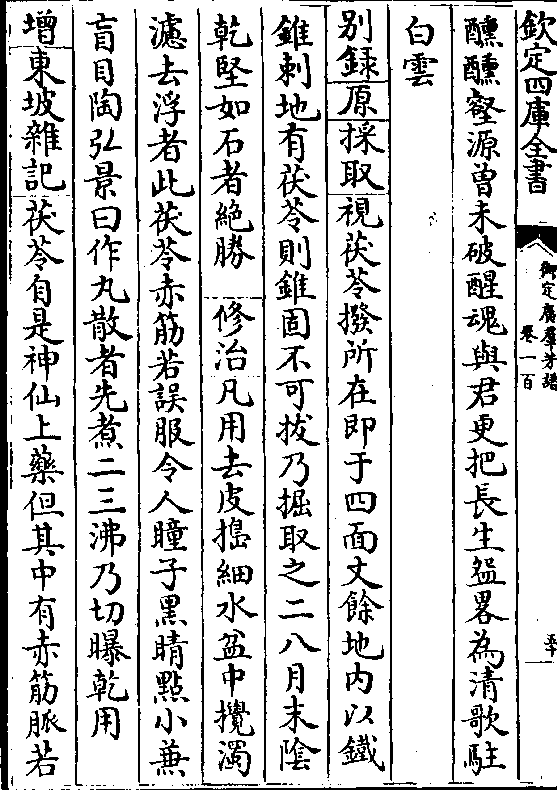 欽定四庫全書
御定廣羣芳譜
卷一百
醺醺壑源曾未破醒魂與君更把長生盌畧為清歌駐
白雲
别録原採取視茯苓撥所在即于四面丈餘地内以鐵
錐刺地有茯苓則錐固不可拔乃掘取之二八月末陰
乾堅如石者絶勝 修治凡用去皮搗細水盆中攪濁
濾去浮者此茯苓赤筋若誤服令人瞳子黑睛點小兼
盲目陶弘景曰作丸散者先煮二三沸乃切曝乾用
增東坡雜記茯苓自是神仙上藥但其中有赤筋脈若